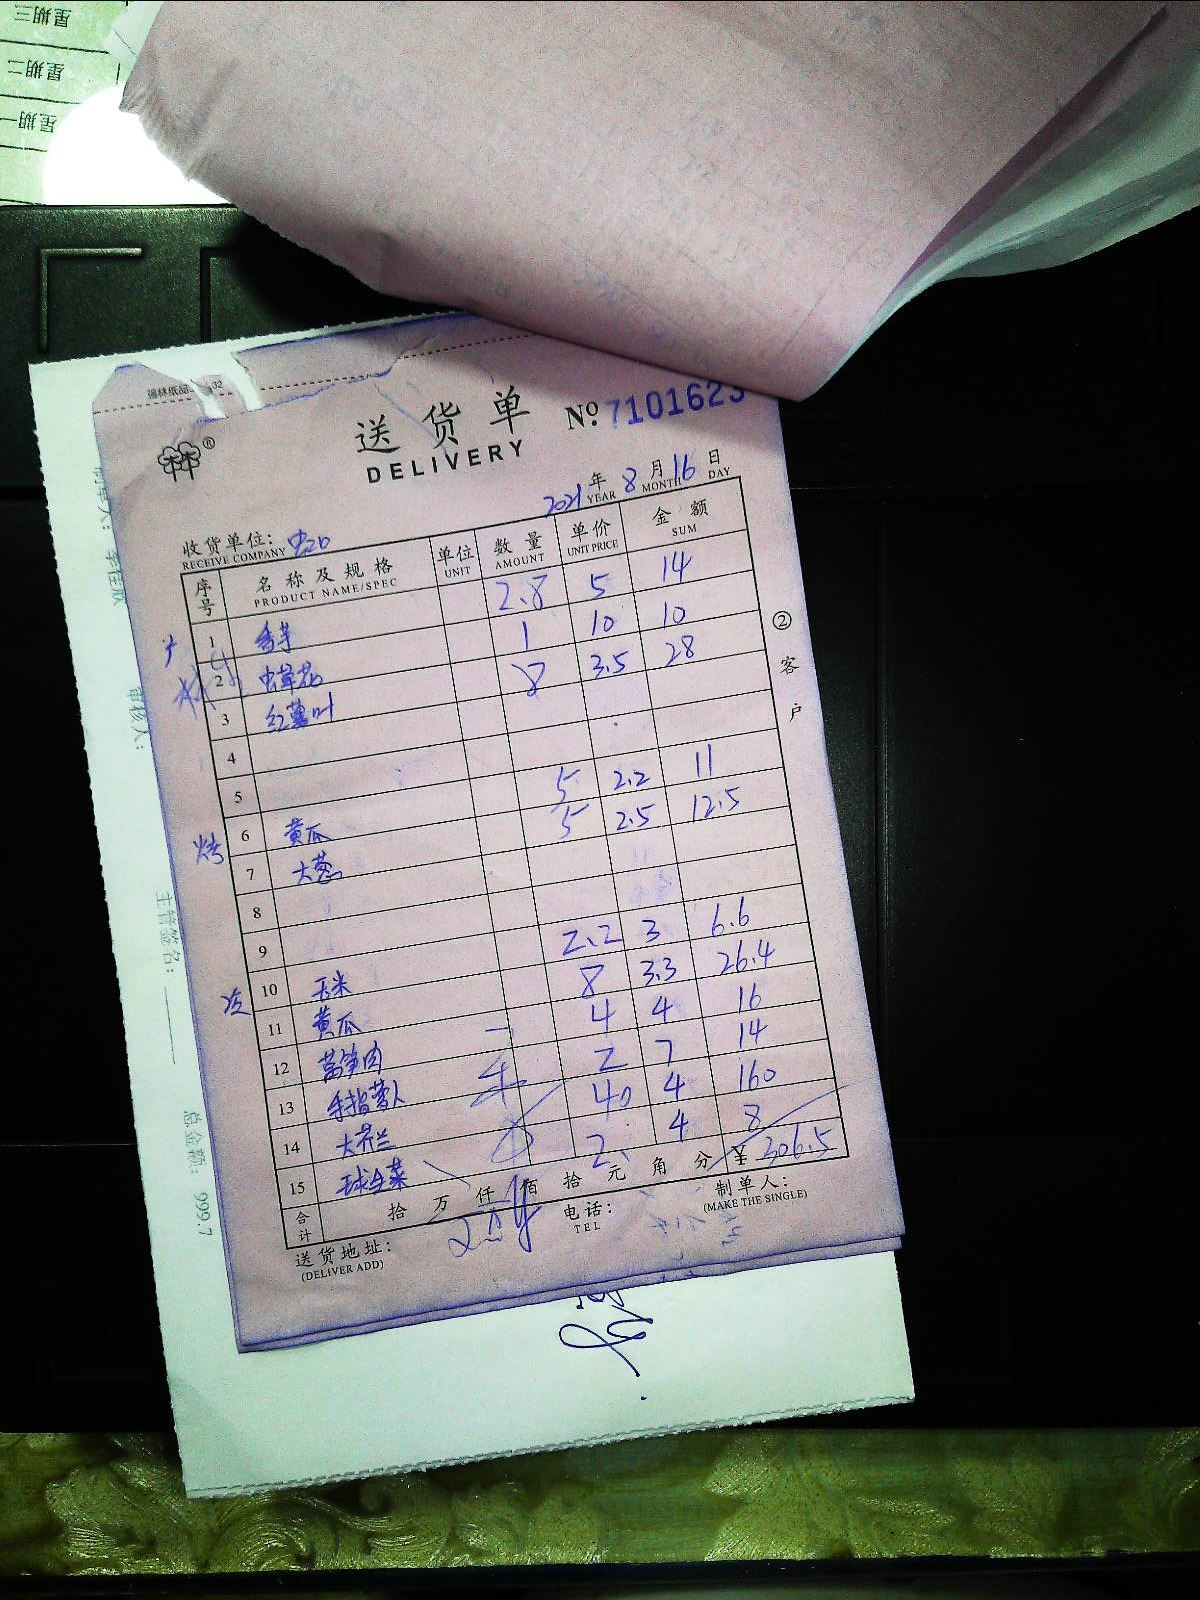 星期三
星期二
星期一
送货单
DELIVERY
№ 7101623
2021 年 8 月 16 日
YEAR MONTH DAY
收货单位:
RECEIVE COMPANY
序号 名称及规格 单位 数量 单价 金额
PRODUCT NAME/SPEC UNIT AMOUNT UNIT PRICE SUM
1 香芋 2.8 5 14
2 虫草花 1 10 10
3 红薯叶 8 3.5 28
4
5
6 黄瓜 5 2.2 11
7 大葱 5 2.5 12.5
8
9
10 玉米 2.2 3 6.6
11 黄瓜 8 3.3 26.4
12 莴笋肉 4 4 16
13 手指萝卜 2 7 14
14 大芥兰 40 4 160
15 球生菜 2 4 8
合计 拾 万 仟 佰 拾 元 角 分 ¥ 306.5
送货地址: 电话: 制单人:
(DELIVER ADD) TEL (MAKE THE SINGLE)
② 客户
审核人:
主管签名:
总金额: 999.7